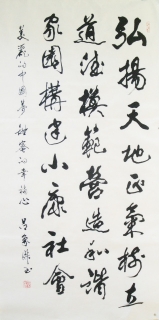 弘揚天地正氣樹立
道德模範營造和諧
家國構建小康社會
美麗的中國夢甜蜜的幸福心